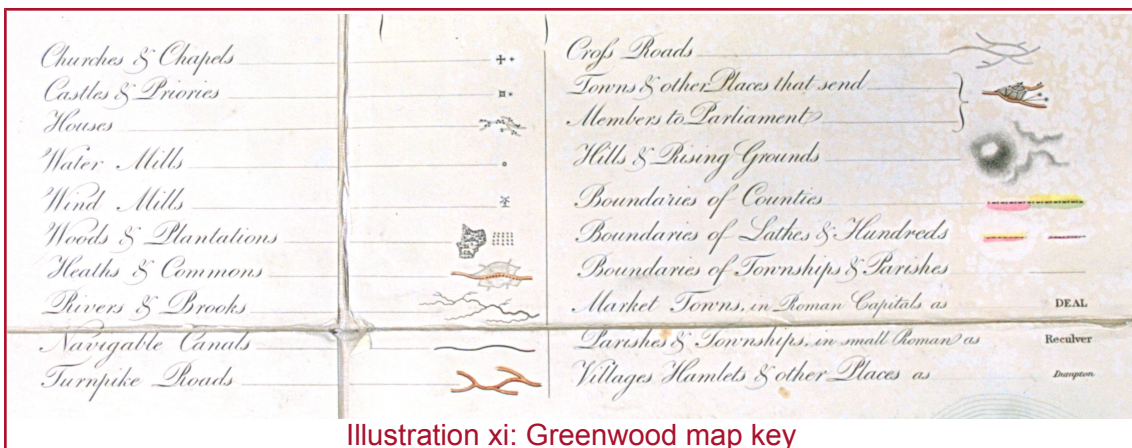 Churches & Chapels
Castles & Priories
Houses
Water Mills
Wind Mills
Woods & Plantations
Heaths & Commons
Rivers & Brooks
Navigable Canals
Turnpike Roads
Croſs Roads
Towns & other Places that send
Members to Parliament
Hills & Rising Grounds
Boundaries of Counties
Boundaries of Lathes & Hundreds
Boundaries of Townships & Parishes
Market Towns, in Roman Capitals as DEAL
Parishes & Townships, in small Roman as Reculver
Villages Hamlets & other Places as Dumpton
Illustration xi: Greenwood map key